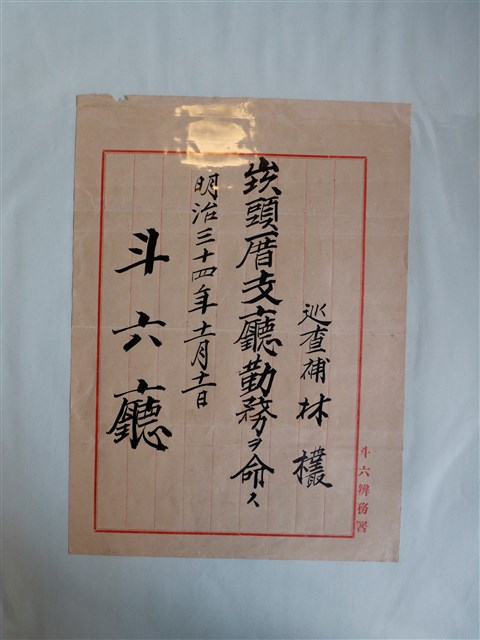 巡查補 林 欉
崁頭厝支廳勤務ヲ命ス
明治三十四年十一月十一日
斗六廳
斗六辨務署